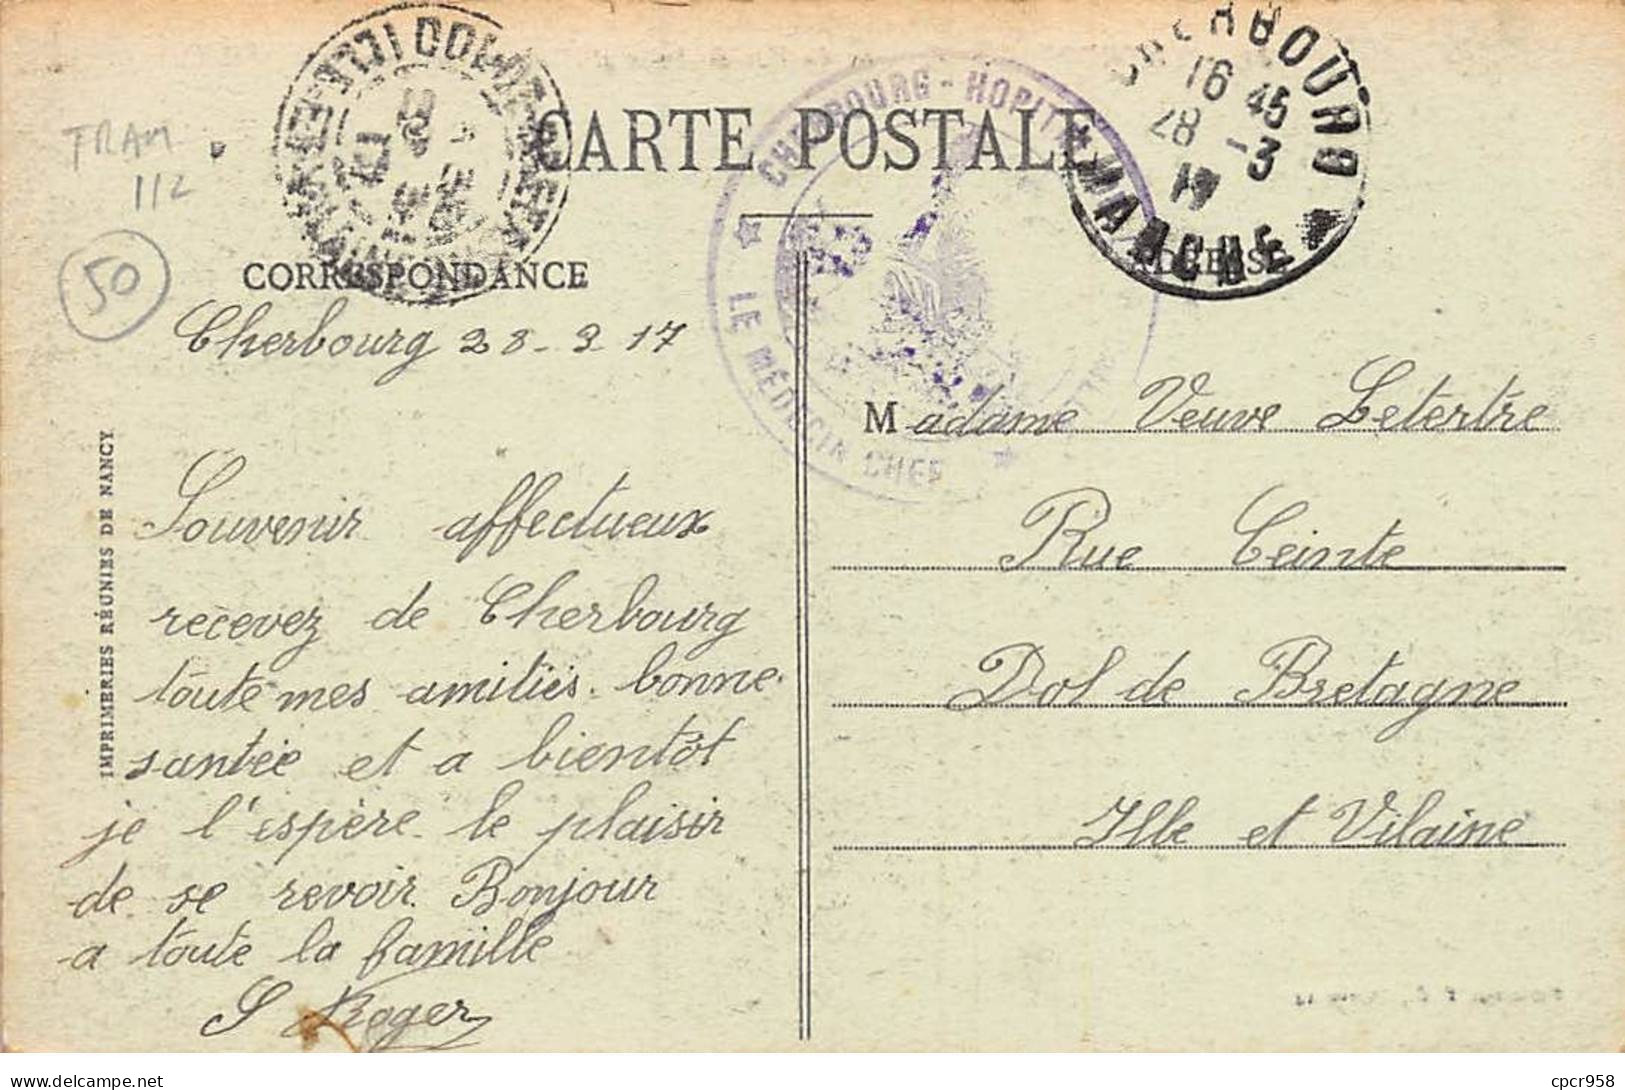 CARTE POSTALE
TRAM
112
50
CHERBOURG - HOPITAL
LE MÉDECIN CHEF
CHERBOURG
16 45
28 -3
17
MANCHE
CORRESPONDANCE
ADRESSE
Cherbourg 28-3-17
Souvenir affectueux
recevez de Cherbourg
toute mes amitiés. bonne
santée et a bientôt
je l'espère le plaisir
de se revoir. Bonjour
a toute la famille
Roger
Madame Veuve Letertre
Rue Ceinte
Dol de Bretagne
Ille et Vilaine
IMPRIMERIES RÉUNIES DE NANCY
delcampe.net
cpcr958